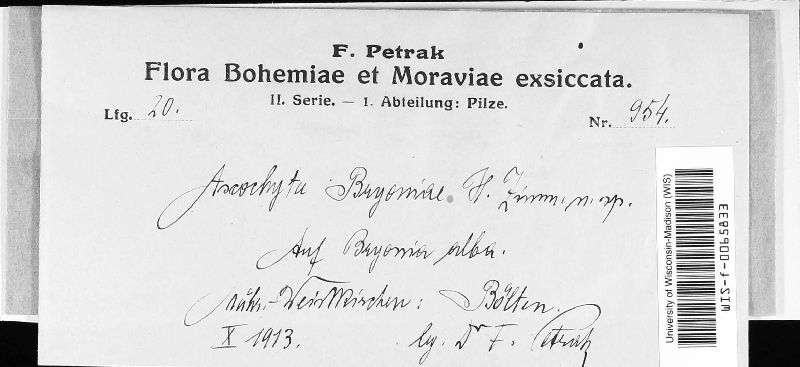 F. Petrak
Flora Bohemiae et Moraviae exsiccata.
II. Serie. — 1. Abteilung: Pilze.
Lfg. 20.
Nr. 954.
Ascochyta Bryoniae H. Zimm. n. sp.
Auf Bryonia alba.
Mähr.-Weisskirchen: Bölten.
X 1913. lg. Dr F. Petrak
University of Wisconsin-Madison (WIS)
WIS-f-0065833